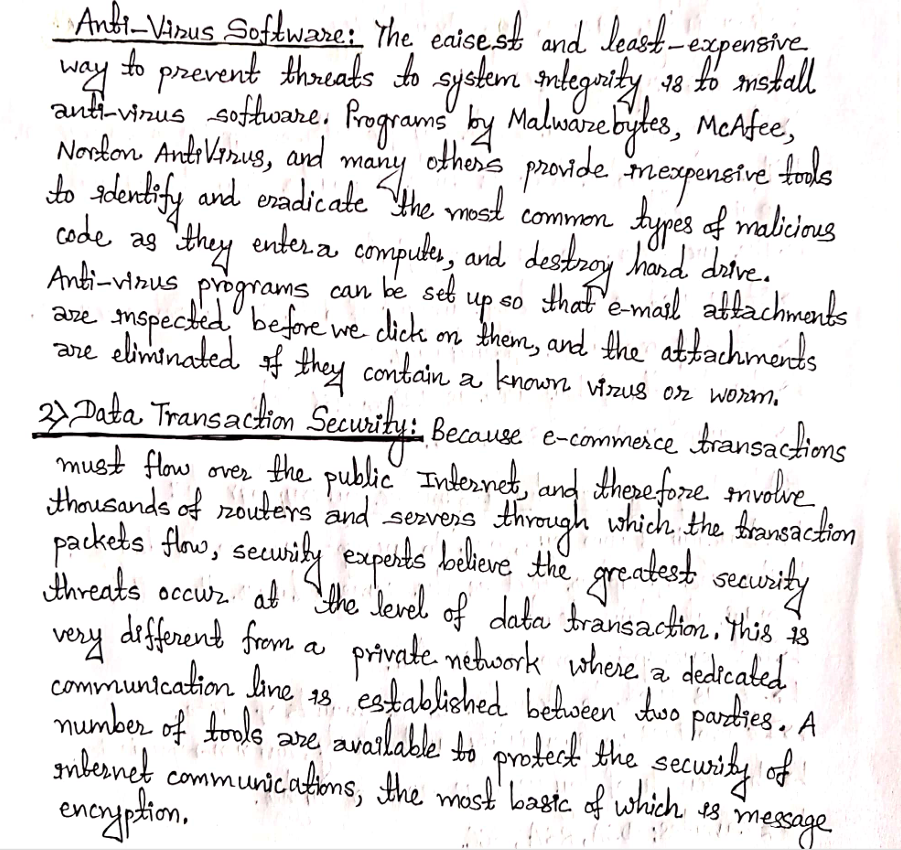 Anti-Virus Software: The eaisest and least-expensive
way to prevent threats to system integrity is to install
anti-virus software. Programs by Malwarebytes, McAfee,
Norton AntiVirus, and many others provide inexpensive tools
to identify and eradicate the most common types of malicious
code as they enter a computer, and destroy hard drive.
Anti-virus programs can be set up so that e-mail attachments
are inspected before we click on them, and the attachments
are eliminated if they contain a known virus or worm.
2) Data Transaction Security: Because e-commerce transactions
must flow over the public Internet, and therefore involve
thousands of routers and servers through which the transaction
packets flow, security experts believe the greatest security
threats occur at the level of data transaction. This is
very different from a private network where a dedicated
communication line is established between two parties. A
number of tools are available to protect the security of
internet communications, the most basic of which is message
encryption.